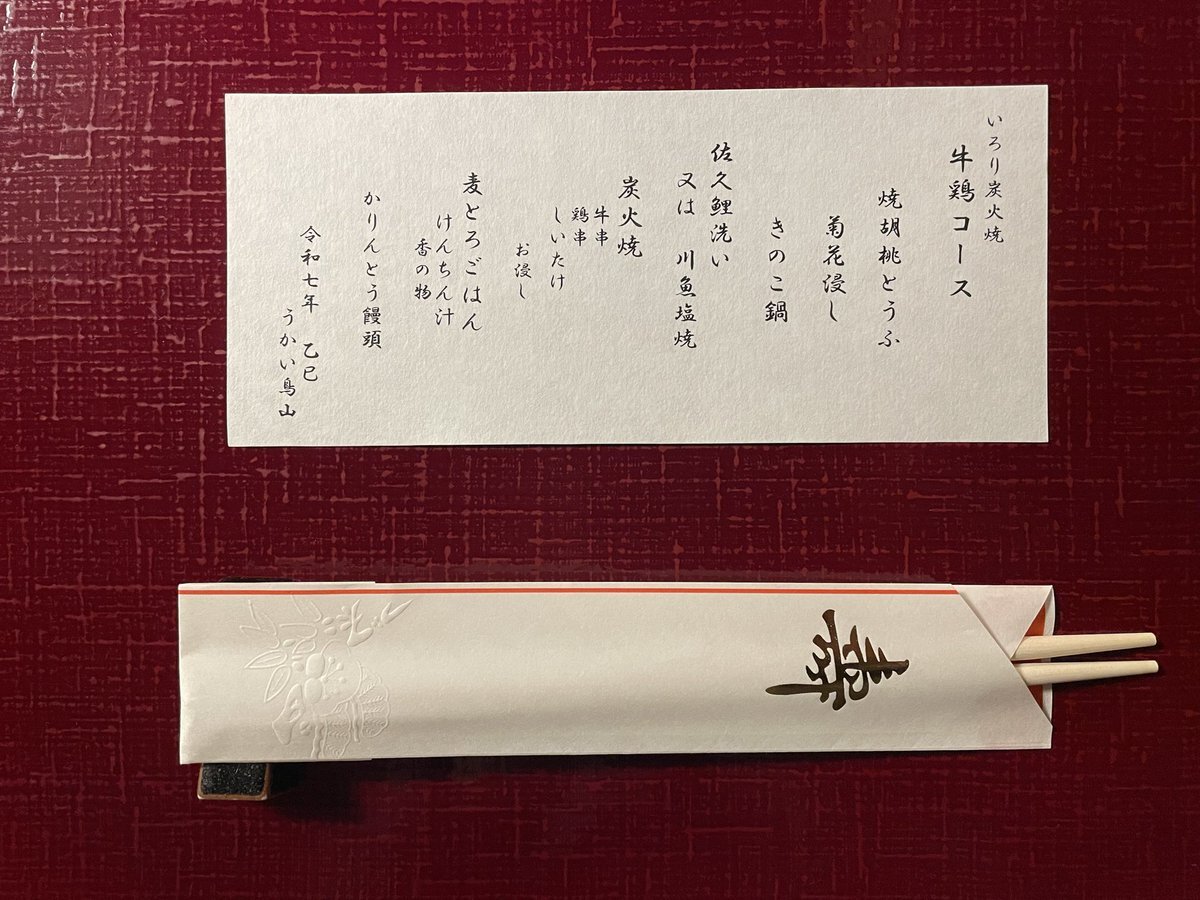 いろり炭火焼
牛鶏コース
焼胡桃とうふ
菊花浸し
きのこ鍋
佐久鯉洗い
又は 川魚塩焼
炭火焼
牛串
鶏串
しいたけ
お浸し
麦とろごはん
けんちん汁
香の物
かりんとう饅頭
令和七年 乙巳
うかい鳥山
寿